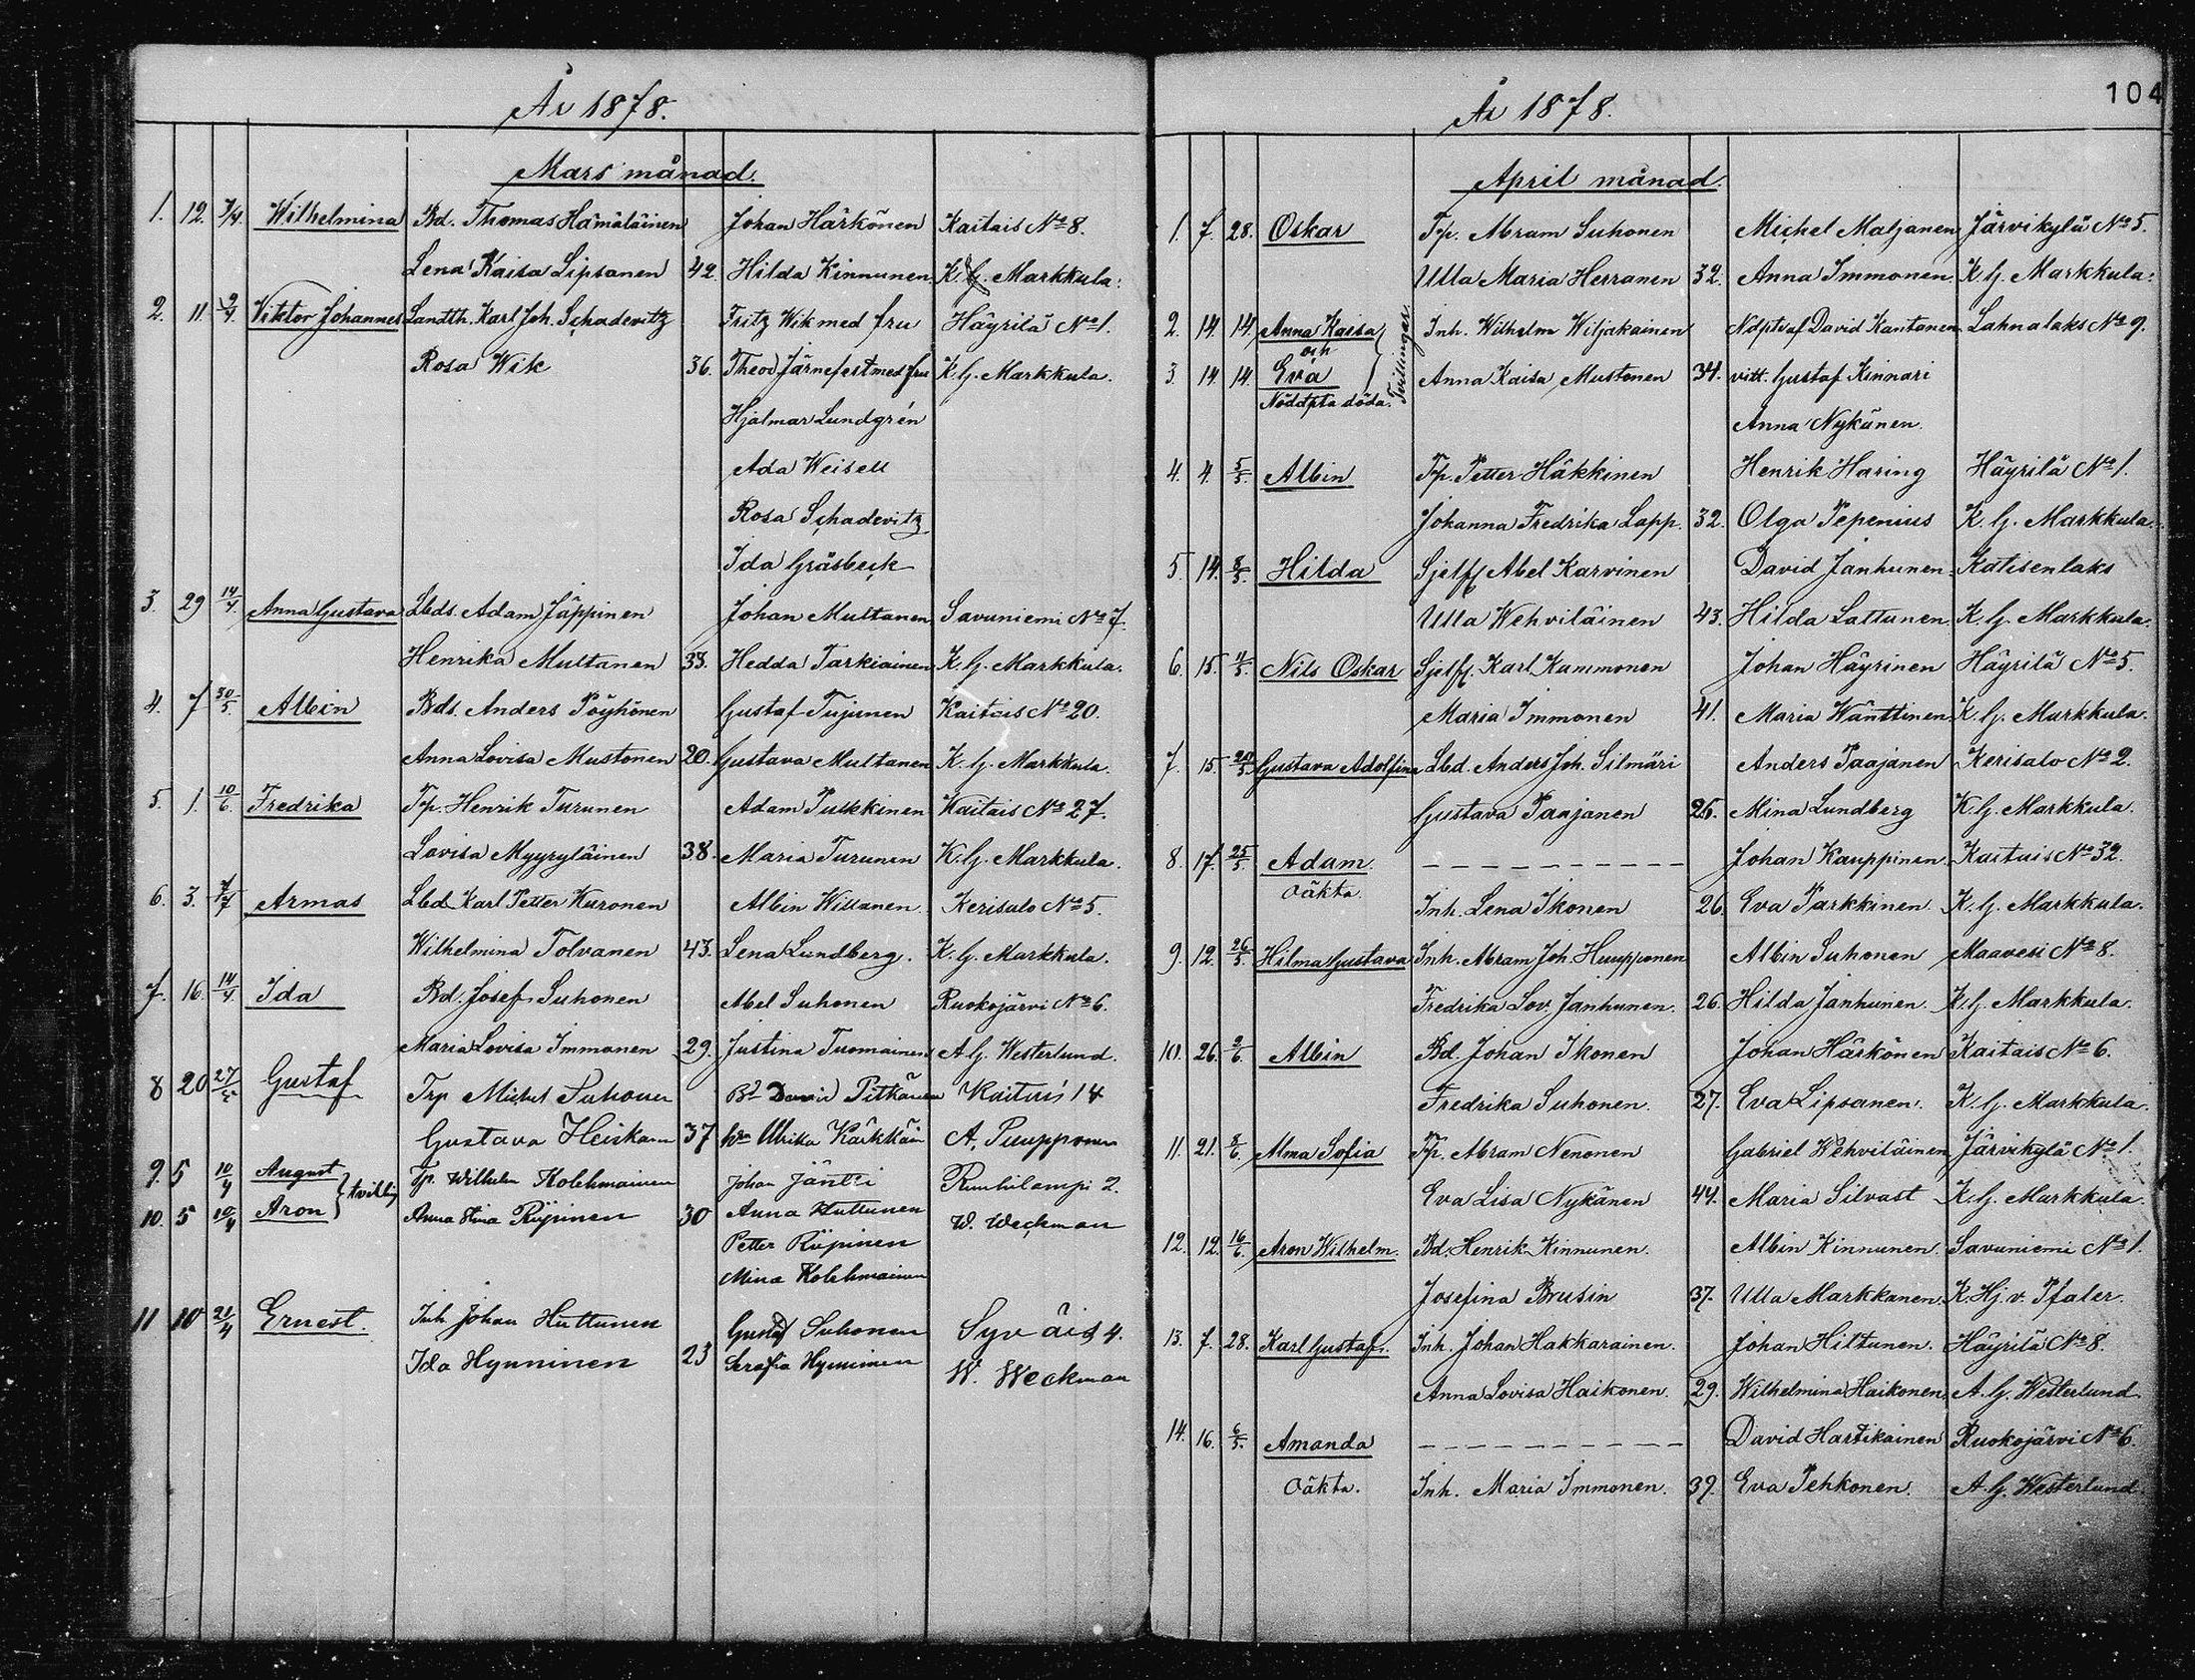 År 1878.
Mars månad.
1. 12. 7/4. Wilhelmina Bd. Thomas Hämäläinen Johan Härkönen Kaitais No 8.
Lena Kaisa Lipsanen 42. Hilda Kinnunen K. G. Markkula.
2. 11. 9/4. Viktor Johannes Landth. Karl Joh. Schadevitz Fritz Wik med fru Häyrilä No 1.
Rosa Wik 36. Theod Järnefest med fru K. G. Markkula.
Hjalmar Lundgrén
Ada Weisell
Rosa Schadevitz
Ida Gräsbeck
3. 29 14/4. Anna Gustava Lbds. Adam Jäppinen Johan Multanen Savuniemi No 7.
Henrika Multanen 33. Hedda Tarkiainen K. G. Markkula.
4. 7 30/5. Albin Bds. Anders Pöyhönen Gustaf Tujunen Kaitais No 20.
Anna Lovisa Mustonen 20. Gustava Multanen K. G. Markkula.
5. 1. 10/6. Fredrika Tp. Henrik Turunen Adam Puskkinen Kaitais No 27.
Lovisa Myyryläinen 38. Maria Turunen K. G. Markkula.
6. 3. 7/7 Armas Lbd Karl Petter Kuronen Albin Willanen. Kerisalo No 5.
Wilhelmina Tolvanen 43. Lena Lundberg. K. G. Markkula.
7. 16. 14/4. Ida Bd. Josef Suhonen Abel Suhonen Ruokojärvi No 6.
Maria Lovisa Immonen 29. Justina Tuomainen A. G. Westerlund.
8 20 27/5 Gustaf Trp Michel Suhonen Bd David Pitkänen Kaitais 14
Gustava Heiskan 37 hn Ulrika Kärkkäin A. Puupponen
9. 5 10/4 August Tp. Wilhelm Kolehmainen Johan Jäntti Rimbilampi 2.
tvilling
10. 5 10/4 Aron Anna Stina Röpinen 30 Anna Huttunen W. Weckman
Petter Röpinen
Mina Kolehmainen
11 10 21/4 Ernest. Inh Johan Huttunen Gustaf Suhonen Syväis 4.
Ida Hynninen 23 Serafia Hynninen W. Weckman
104
År 1878.
April månad.
1. 7. 28. Oskar Tp. Abram Suhonen Michel Matjanen Järvikylä No 5.
Ulla Maria Herranen 32. Anna Immonen. K. G. Markkula.
2. 14. 14. Anna Kaisa Inh. Wilhelm Wiljakainen Ndpt af David Kantanen Lahnalaks No 9.
och
Tvillingar.
3. 14. 14. Eva Anna Kaisa Mustonen 34. vitt. Gustaf Kinnari
Nöddpta döda. Anna Nykänen.
4. 4. 5/5. Albin Tp. Petter Häkkinen Henrik Haring Häyrilä No 1.
Johanna Fredrika Lapp. 32. Olga Pepenius K. G. Markkula.
5. 14. 8/5. Hilda Sjelff Abel Karvinen David Janhunen. Katisenlaks
Ulla Wehviläinen 43. Hilda Lattunen. K. G. Markkula.
6. 15. 11/5. Nils Oskar Sjelff. Karl Kammonen Johan Häyrinen Häyrilä No 5.
Maria Immonen 41. Maria Wänttinen K. G. Markkula.
7. 15. 20/5. Gustava Adolfina Lbd. Anders Joh. Silmäri Anders Paajanen Kerisalo No 2.
Gustava Paajanen 26. Mina Lundberg K. G. Markkula.
8. 17. 25/5. Adam. – – – – – – – – – – Johan Kauppinen Kaitais No 32.
Oäkta. Inh. Lena Ikonen 26. Eva Parkkinen. K. G. Markkula.
9. 12. 26/5. Hilma Gustava Inh. Abram Joh. Huupponen Albin Suhonen Maavesi No 8.
Fredrika Lov. Janhunen. 26. Hilda Janhunen. K. G. Markkula.
10. 26. 2/6. Albin Bd. Johan Ikonen Johan Härkönen Kaitais No 6.
Fredrika Suhonen. 27. Eva Lipsanen. K. G. Markkula.
11. 21. 8/6. Alma Sofia Tp. Abram Nenonen Gabriel Wehviläinen Järvikylä No 1.
Eva Lisa Nykänen 44. Maria Silvast K. G. Markkula.
12. 12. 16/6. Aron Wilhelm. Bd. Henrik Kinnunen. Albin Kinnunen. Savuniemi No 1.
Josefina Brusin 37. Ulla Markkanen. K. Hj. v. Pfaler.
13. 7. 28. Karl Gustaf. Inh. Johan Hakkarainen. Johan Hiltunen. Häyrilä No 8.
Anna Lovisa Haikonen. 29. Wilhelmina Haikonen. A. G. Westerlund.
14. 16. 6/5. Amanda – – – – – – – – – – David Hartikainen Ruokojärvi No 6.
Oäkta. Inh. Maria Immonen. 39. Eva Pehkonen. A. G. Westerlund.